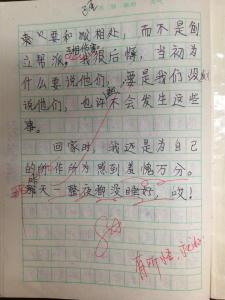 要和睦相处，而不是创
立帮派。我很后悔，当初为
什么要说他们，要是我们没有
说他们，也许不会发生这些
事。
回家时，我还是为自己
的所作所为感到羞愧万分。
一整夜都没睡好，哎！
有所悟